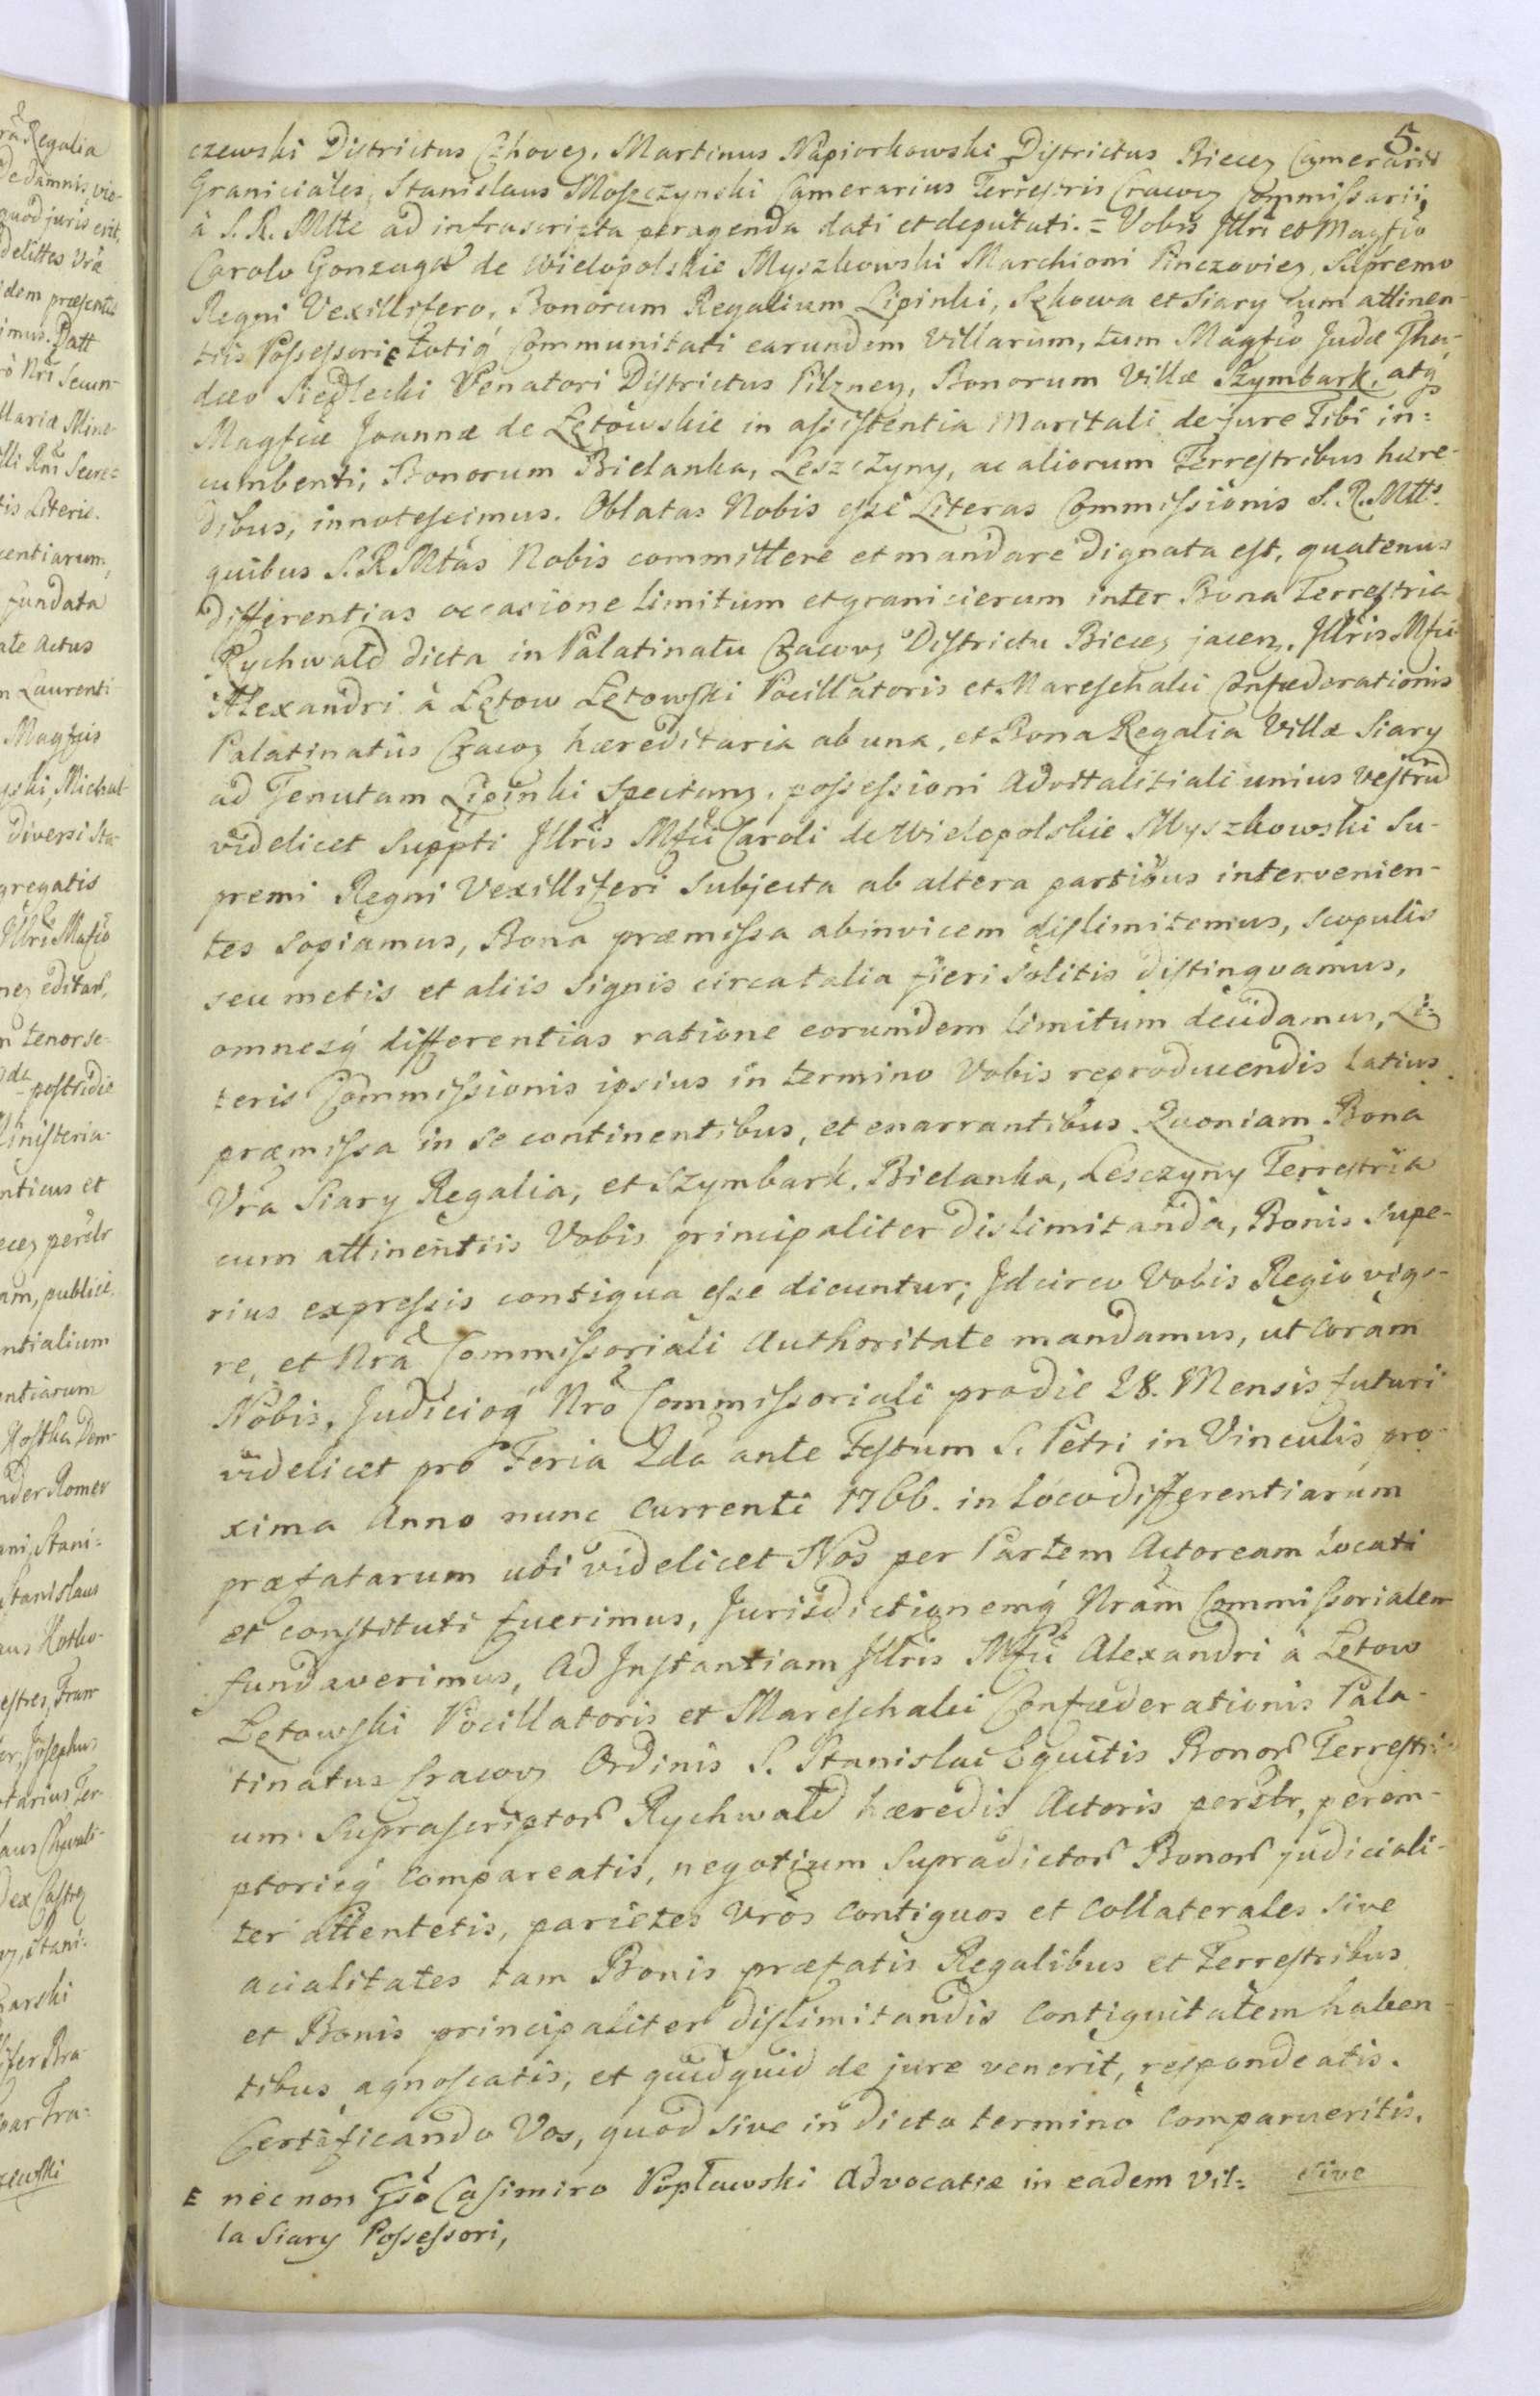 5
czewski Districtus Czhovez. Martinus Napiorkowski Districtus Biecez Camerarii
Graniciales, Stanislaus Moszczynski Camerarius Terrestris Cracovz Commissarii
à S. R. Mtte ad infrascripta peragenda dati et deputati. = Vobis Jllri et Magfico
Carolo Gonzaga de Wielopolskie Myszkowski Marchioni Pinczoviez, Supremo
Regni Vexillifero, Bonorum Regalium Lipinki, Szkowa et Siary cum attinen-
tiis Possessori E totiq Communitati earundem Villarum, tum Magfico Judæ Tha-
dæo Siedlecki Venatori Districtus Pilznez, Bonorum Villæ Szymbark, atq
Magficæ Joannæ de Łętowskie in assistentia maritali de jure Tibi in=
cumbenti, Bonorum Bielanka, Leszczyny, ac aliorum Terrestribus hære-
dibus, innotescimus. Oblatas Nobis esse Literas Commissionis S. R. Mtts
quibus S. R. Mtas Nobis committere et mandare dignata est, quatenus
differentias occasione limitum et granicierum inter Bona Terrestria
Rychwald dicta in Palatinatu Cracovz Districtu Biecez jacenz. Jllris Mfci
Alexandri à Łętow Łętowski Pocillatoris et Mareschalci Confœderationis
Palatinatûs Cracoz hæreditaria ab una, et Bona Regalia Villæ Siary
ad Tenutam Lipinki Spectanz. possessioni advitalitiali unius Vestrum
videlicet suppti Jllris Mfci Caroli de Wielopolskie Myszkowski Su-
premi Regni Vexilliferi Subjecta ab altera partibus intervenien-
tes sopiamus, Bona præmissa abinvicem dislimitemus, scopulis
seu metis et aliis signis circa talia fieri solitis distinguamus,
omnesq differentias ratione eorumdem limitum decidamus, Li=
teris Commissionis ipsius in termino Vobis reproducendis latius
præmissa in se continentibus, et enarrantibus. Quoniam Bona
Vra Siary Regalia, et Szymbark, Bielanka, Lesczyny Terrestria
cum attinentiis Vobis principaliter dislimitanda, Bonis supe-
rius expressis contigua esse dicuntur; Jdcirco Vobis Regio vigo-
re, et Nra Commissoriali Authoritate mandamus, ut coram
Nobis, Judicioq Nro Commissoriali pro die 28. Mensis futuri
videlicet pro Feria 2da ante Festum S. Petri in Vinculis pro-
xima Anno nunc currenti 1766. in loco differentiarum
præfatarum ubi videlicet Nos per Partem Actoream locati
et constituti fuerimus, Jurisdictionemq Nram Commissorialem
fundaverimus, ad Jnstantiam Jllris Mfci Alexandri à Łętow
Łętowski Pocillatoris et Mareschalci Confœderationis Pala-
tinatus Cracovz Ordinis S. Stanislai Equitis Bonor Terrestri-
um Suprascriptor Rychwald hæredis Actoris perslr, perem-
ptorieq compareatis, negotium supradictor Bonor judiciali-
ter attentetis, parietes Vros contiguos et collaterales sive
acialitates tam Bonis præfatis Regalibus et Terrestribus
et Bonis principaliter dislimitandis contiguitatem haben-
tibus agnoscatis, et quidquid de jure venerit, respondeatis.
Certificando Vos, quod sive in dicto termino comparueritis,
sive
E nec non Gso Casimiro Popławski Advocatiæ in eadem Vil=
la Siary Possessori,